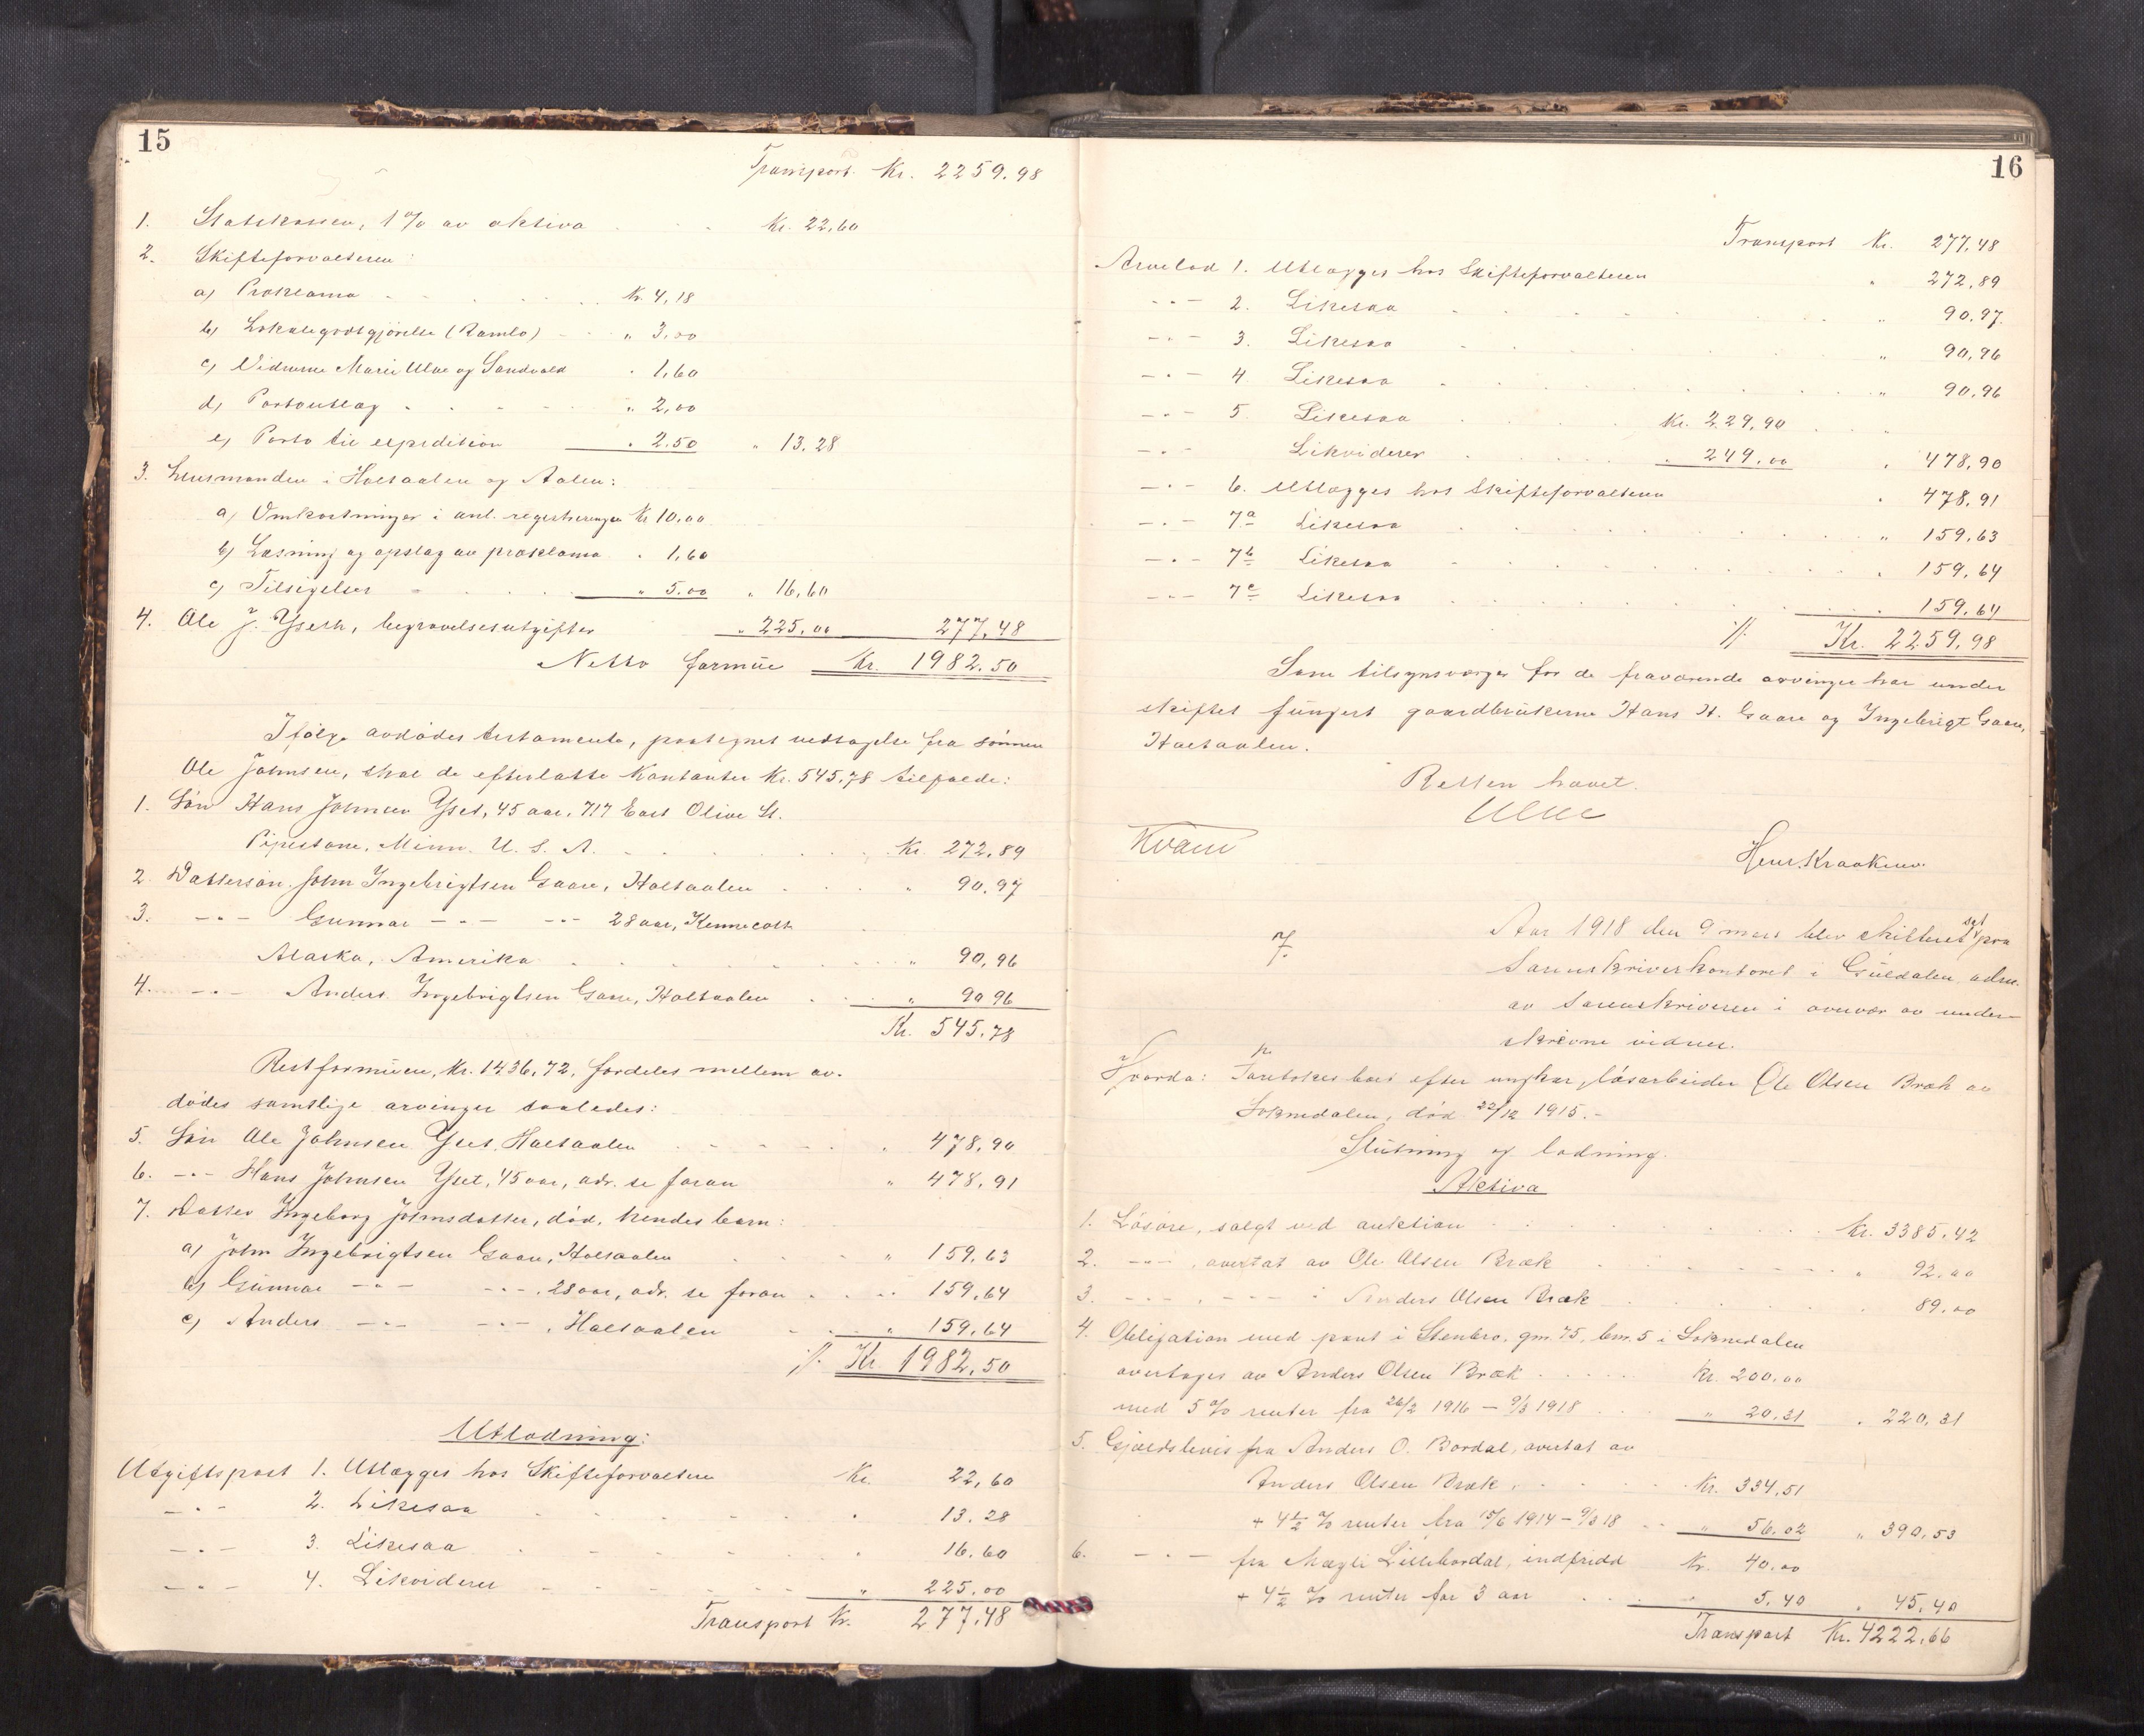 15
Transport Kr. 2259.98
1. Statskassen, 1% av aktiva Kr. 22,60
2. Skifteforvalteren:
a) Proklama Kr. 4,18
b) Lokalegodtgjörelse (Ramlo) " 3,00
c) Vidnerne Marie Ulve og Sandvold " 1,60
d) Portoutlæg " 2,00
e) Porto til expedition " 2.50 " 13.28
3. Lensmanden i Holtaalen og Aalen:
a) Omkostninger i anl. registreringen Kr 10,00
b) Læsning og opslag av proklama " 1,60
c) Tilsigelser " 5.00 " 16,60
4. Ole J. Yseth, begravelsesutgifter " 225,00 277,48
Netto formue Kr. 1982.50
Ifölge avdödes testamente, paategnet vedtagelse fra sönnen
Ole Johnsen, skal de efterlatte Kontanter Kr. 545,78 tilfalde:
1. Sön Hans Johnsen Yset, 45 aar, 717 East Olive St.
Pipestone, Minn. U. S. A. Kr. 272,89
2. Dattersön John Ingebrigtsen Gaare, Holtaalen " 90,97
3. -"- Gunnar -"- -"- 28 aar, Kennecott
Alaska, Amerika " 90,96
4. -"- Anders Ingebrigtsen Gaare, Holtaalen " 90 96
Kr. 545.78
Restformuen, Kr. 1436,72, fordeles mellem av-
dödes samtlige arvinger saaledes:
5. Sön Ole Johnsen Yset, Holtaalen " 478,90
6. -"- Hans Johnsen Yset, 45 aar, adr. se foran " 478,91
7. Datter Ingeborg Johnsdatter, död, hendes barn:
a) John Ingebrigtsen Gaare, Holtaalen " 159,63
b) Gunnar -"- -"-, 28 aar, adr. se foran " 159,64
c) Anders -"- -"-, Holtaalen " 159,64
·/. Kr. 1982,50
Utlodning:
Utgiftspost 1. Utlægges hos Skifteforvalteren Kr. 22,60
-"- 2. Likesaa " 13.28
-"- 3. Likesaa " 16.60
-"- 4. Likviderer " 225.00
Transport Kr. 277,48
16
Transport Kr. 277,48
Arvelod 1. Utlægges hos Skifteforvalteren " 272,89
-"- 2. Likesaa " 90.97.
-"- 3. Likesaa " 90,96
-"- 4 Likesaa " 90,96
-"- 5. Likesaa Kr. 229,90
-"- Likviderer " 249.00 " 478,90
-"- 6. Utlægges hos Skifteforvalteren " 478,91
-"- 7a Likesaa " 159.63
-"- 7b Likesaa " 159,64
-"- 7c Likesaa " 159.64
·/. Kr. 2259.98
Som tilsynsværger for de fraværende arvinger har under
skiftet fungert gaardbrukerne Hans H. Gaare og Ingebrigt Gaare,
Holtaalen.
Retten hævet.
Ulve
Kvam
Henr. Kraakmo.
7.
Aar 1918 den 9 mars blev skifteret set paa
Sorenskriverkontoret i Guldalen adm.
av Sorenskriveren i overvær av under-
skrevne vidner.
Hvorda: Foretokes boet efter ungkar, lösarbeider Ole Olsen Bræk av
Soknedalen, död 22/12 1915.-
Slutning og lodning.
Aktiva
1. Lösöre, solgt ved auktion Kr. 3385.42
2. -"-, overtat av Ole Olsen Bræk " 92.00
3. -"-, -"- " Anders Olsen Bræk " 89.00
4. Obligation med pant i Stenbro, gm. 75, bm. 5 i Soknedalen
overtages av Anders Olsen Bræk Kr. 200.00
med 5% renter fra 26/2 1916 - 9/3 1918 " 20.31 " 220,31
5. Gjældsbevis fra Anders O. Bordal, overtat av
Anders Olsen Bræk Kr. 334,51
+ 4½ % renter fra 15/6 1914 - 9/3 18 " 56.02 " 390,53
6. -"- fra Magli Lillebordal, indfridd Kr. 40.00
+ 4½ % renter for 3 aar " 5,40 " 45.40
Transport Kr. 4222,66